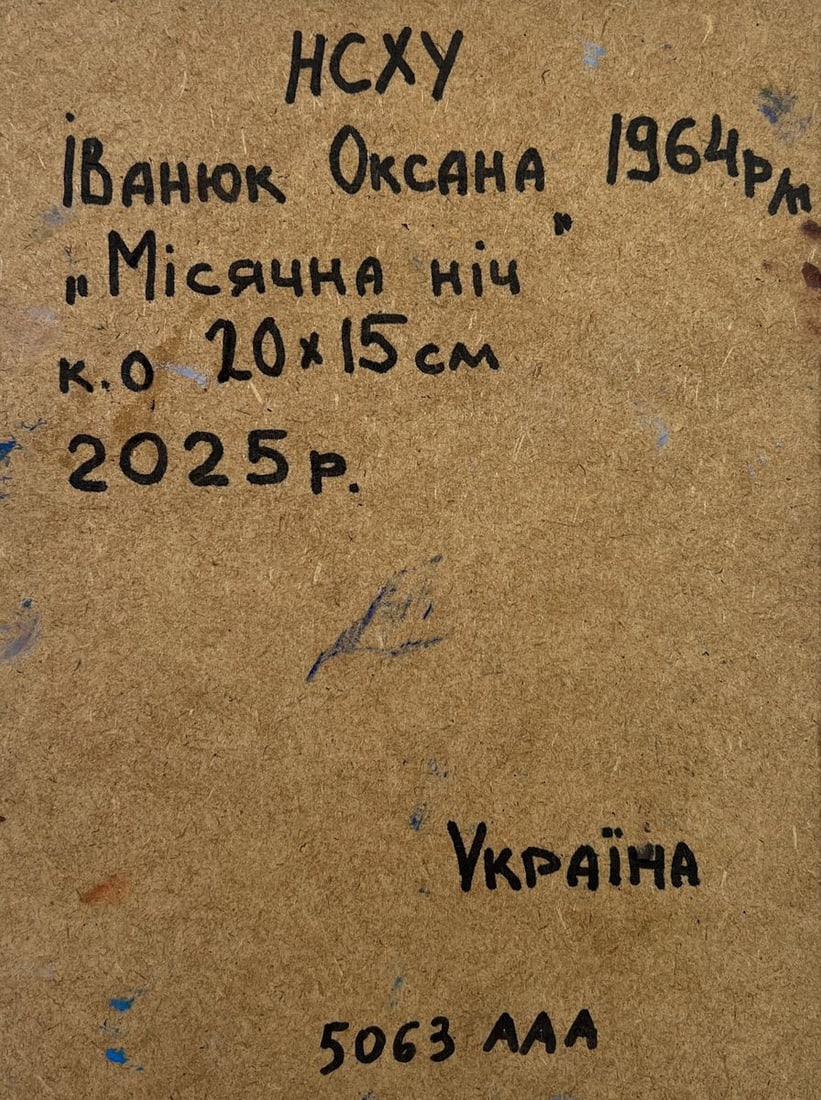 НСХУ
Іванюк Оксана 1964 р/н
„Місячна ніч"
к.о 20х15 см
2025 р.
Україна
5063 ААА